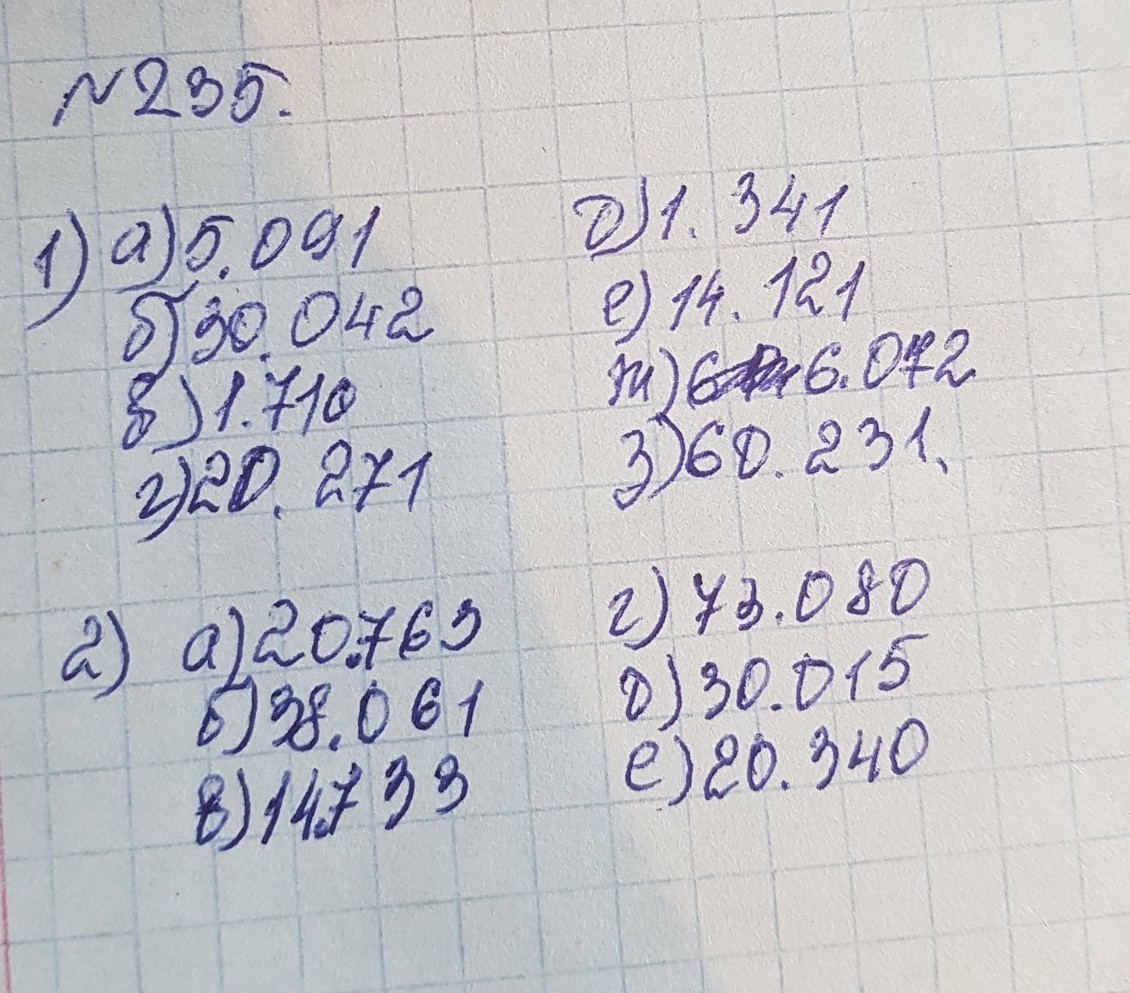 №235.
1) а) 5.091
б) 30.042
в) 1.710
г) 20.271
д) 1.341
е) 14.121
ж) 6.072
з) 60.231.
2) а) 20.763
б) 38.061
в) 14.733
г) 73.080
д) 30.015
е) 20.340